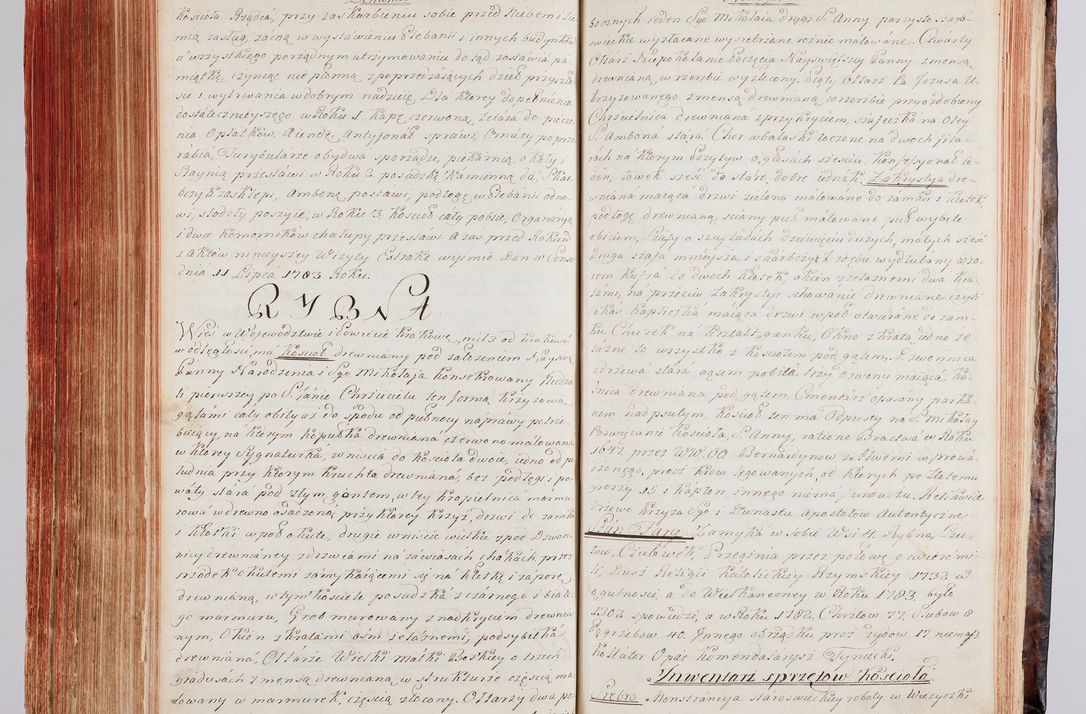 Kościoła Rządca, przy zaskarbieniu sobie przed Niebem i Zie
mią zasług, zaczną w wystawieniu Plebanii i innych budynków
a wszystkiego porządnym utrzymowaniu dotąd zostawia pa
miątkę, czyniąc niepłonną z poprzedzających dzieł przyszło
ści i wytrwania w dobrym nadzieię. Dla którey dopełnienia
dostatecznieyszego, w Roku 1 kapę czerwoną, żelaza do piecze
nia Opłatków, Agendę, Antyfonał sprawi, Ornaty popra
rabia, Turybularze obydwa sporządzi, piekarnią, okoły i
stayniã przestawi w Roku 2. posadzkę kamienną da, Skar
bczyk zasklepi, Ambonę postawi, podłogę w Plebanii odno
wi, stodoły poszyie, w Roku 3. Kościoł cały pobiie, Organaryą
i dwie komorników chałupy przestawi
z Aktów ninieyszey Wizyty
dnia 11 Lipca 1783 Roku.
RYBNA
Wieś w Woiewództwie i Powiecie Krakows: mil 3 od Krakowa
w odległości, ma Kościoł drewniany pod założeniem Nayśw:
Panny Narodzenia i Sgo Mikołaja konsekrowany Niedzie
li pierwszey po S. Janie Chrzcicielu ten formą krzyżową
gątami cały obity aż do spodu od pułnocy naprawy potrze
buiący, na którym kopułka drewniana czerwono malowana
w którey Sygnaturka, wniścia do kościoła dwoie, iedno od po
łudnia przy którym kruchta drewniana, bez podłogi i po
wały stara pod złym gontem, w tey kropielnica marmu
rowa w drewno osadzona, przy którey krzyż, drzwi do zamku
i kłotki w pół okute, drugie wniście wielkie z pod Dzwon
nicy drewnianey z drzwiami na zawiasach i hakach przez
środek okutemi zamykaiącemi się na kłotkę i zaporę
drewnianą, w tym kościele posadzka z czarnego i białe
go marmuru, Grób murowany z nadkryciem drewnia
nym, Okien z kratami ośm żelaznemi, podsybitka
drewniana, Ołtarze Wielki Matki Boskiey o trzech
gradusach z mensą drewnianą w strukturze częścią ma
lowany w marmurek, częścią złocony. Ołtarzy dwa po
bocznych ieden Sgo Mikołaia drugi S. Anny parzyste staro
świeckie wyzłacane wysrebrzane rożnie malowane. Czwarty
Ołtarz Niepokalanie Poczęcia Nayświętszey Panny z mensą
drewnianą, w rzeźbie wyzłocony. Piąty Ołtarz Pa: Jezusa U
krzyżowanego z mensą drewnianą w rzeźbie przyozdobiony
Chrzcielnica drewniana z przykryciem, szafeczka na Oley
S. Ambona stara, Chor w balaski toczone na dwoch fila
rach na którym Pozytyw o głosach sześciu, konfesyonał ie
den, ławek sześć to stare, dobre iednak. Zakrystya dre
wniana maiąca drzwi zielono malowane do zamku i kłotek
podłogę drewnianą, ściany puł malowane puł wybite
obiciem, Szafy o szufladach dziewięciu dużych, małych sześć
druga szafa mnieysza i skarbczyk
dwoch kłotek, okien żelaznemi dwa kra
tami, na przeciw Zakrystyi schowanie drewniane czyli
iakaś kapliczka maiąca drzwi w pół otwierane do zam
ku Churek na kształt ganku, Okno z kratą iedno że
lazną: to wszystko z kościołem pod gątem, Dzwonnica
z drzewa stara, gątem pobita trzy dzwony maiąca, Ko
śnica drewniana pod gątem. Cmentarz opasany parka
nem nadpsutym. Kościoł ten ma Odpusty na S. Mikołay
Poświęcanie Kościoła, S. Anny, ratione Bractwa w Roku
1647. przez WW. OO. Bernardynow z Alwerni wprowa
dzonego, procz krow legowanych, od których po złotemu
groszy 15 i kapłon, innego niema funduszu. Relikwiie
drzewo Krzyża Sgo i Dunastu Apostołow Autentyczne
Stan Para: Zamyka w sobie Wsi 4. Rybna, Czu
łow, Czułówek, Przeginia przez połowę z cwierciami
4. Dusz Religii Katolickiey Rzymskiey 1732 w
ogulności, a do Wielkanocney w Roku 1783 było
1302 spowiedzi, a w Roku 1782. Chrztow 77. Slubow 8
Pogrzebow 40. Innego obrządku procz Zydow 17 niemasz
Kollator Opat Komendataryusz Tyniecki.
Inwentarz sprzętow kościoła
Srebro. Monstrancya staroświeckiey roboty w Wieżyczki